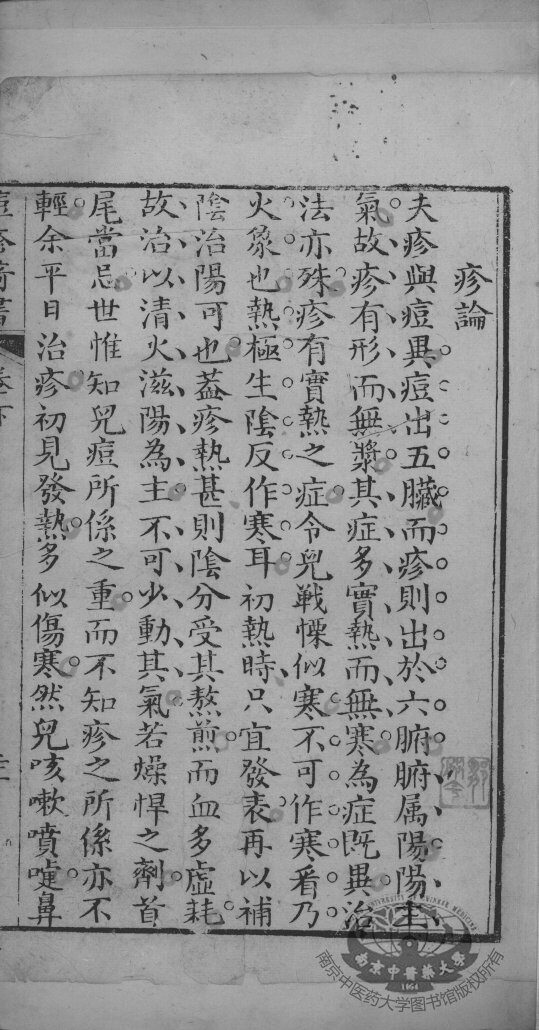 疹論
夫疹與痘異痘出五臟而疹則出於六腑腑属陽陽主
氣故疹有形而無漿其症多實熱而無寒為症既異治
法亦殊疹有實熱之症令兒戰慄似寒不可作寒看乃
火象也熱極生陰反作寒耳初熱時只宜發表再以補
陰治陽可也蓋疹熱甚則陰分受其熬煎而血多虛耗
故治以清火滋陽為主不可少動其氣若燥悍之劑首
尾當忌世惟知兒痘所係之重而不知疹之所係亦不
輕余平日治疹初見發熱多似傷寒然兒咳嗽噴嚏鼻
卷下
南京中醫藥大學
1954
南京中医药大学图书馆版权所有